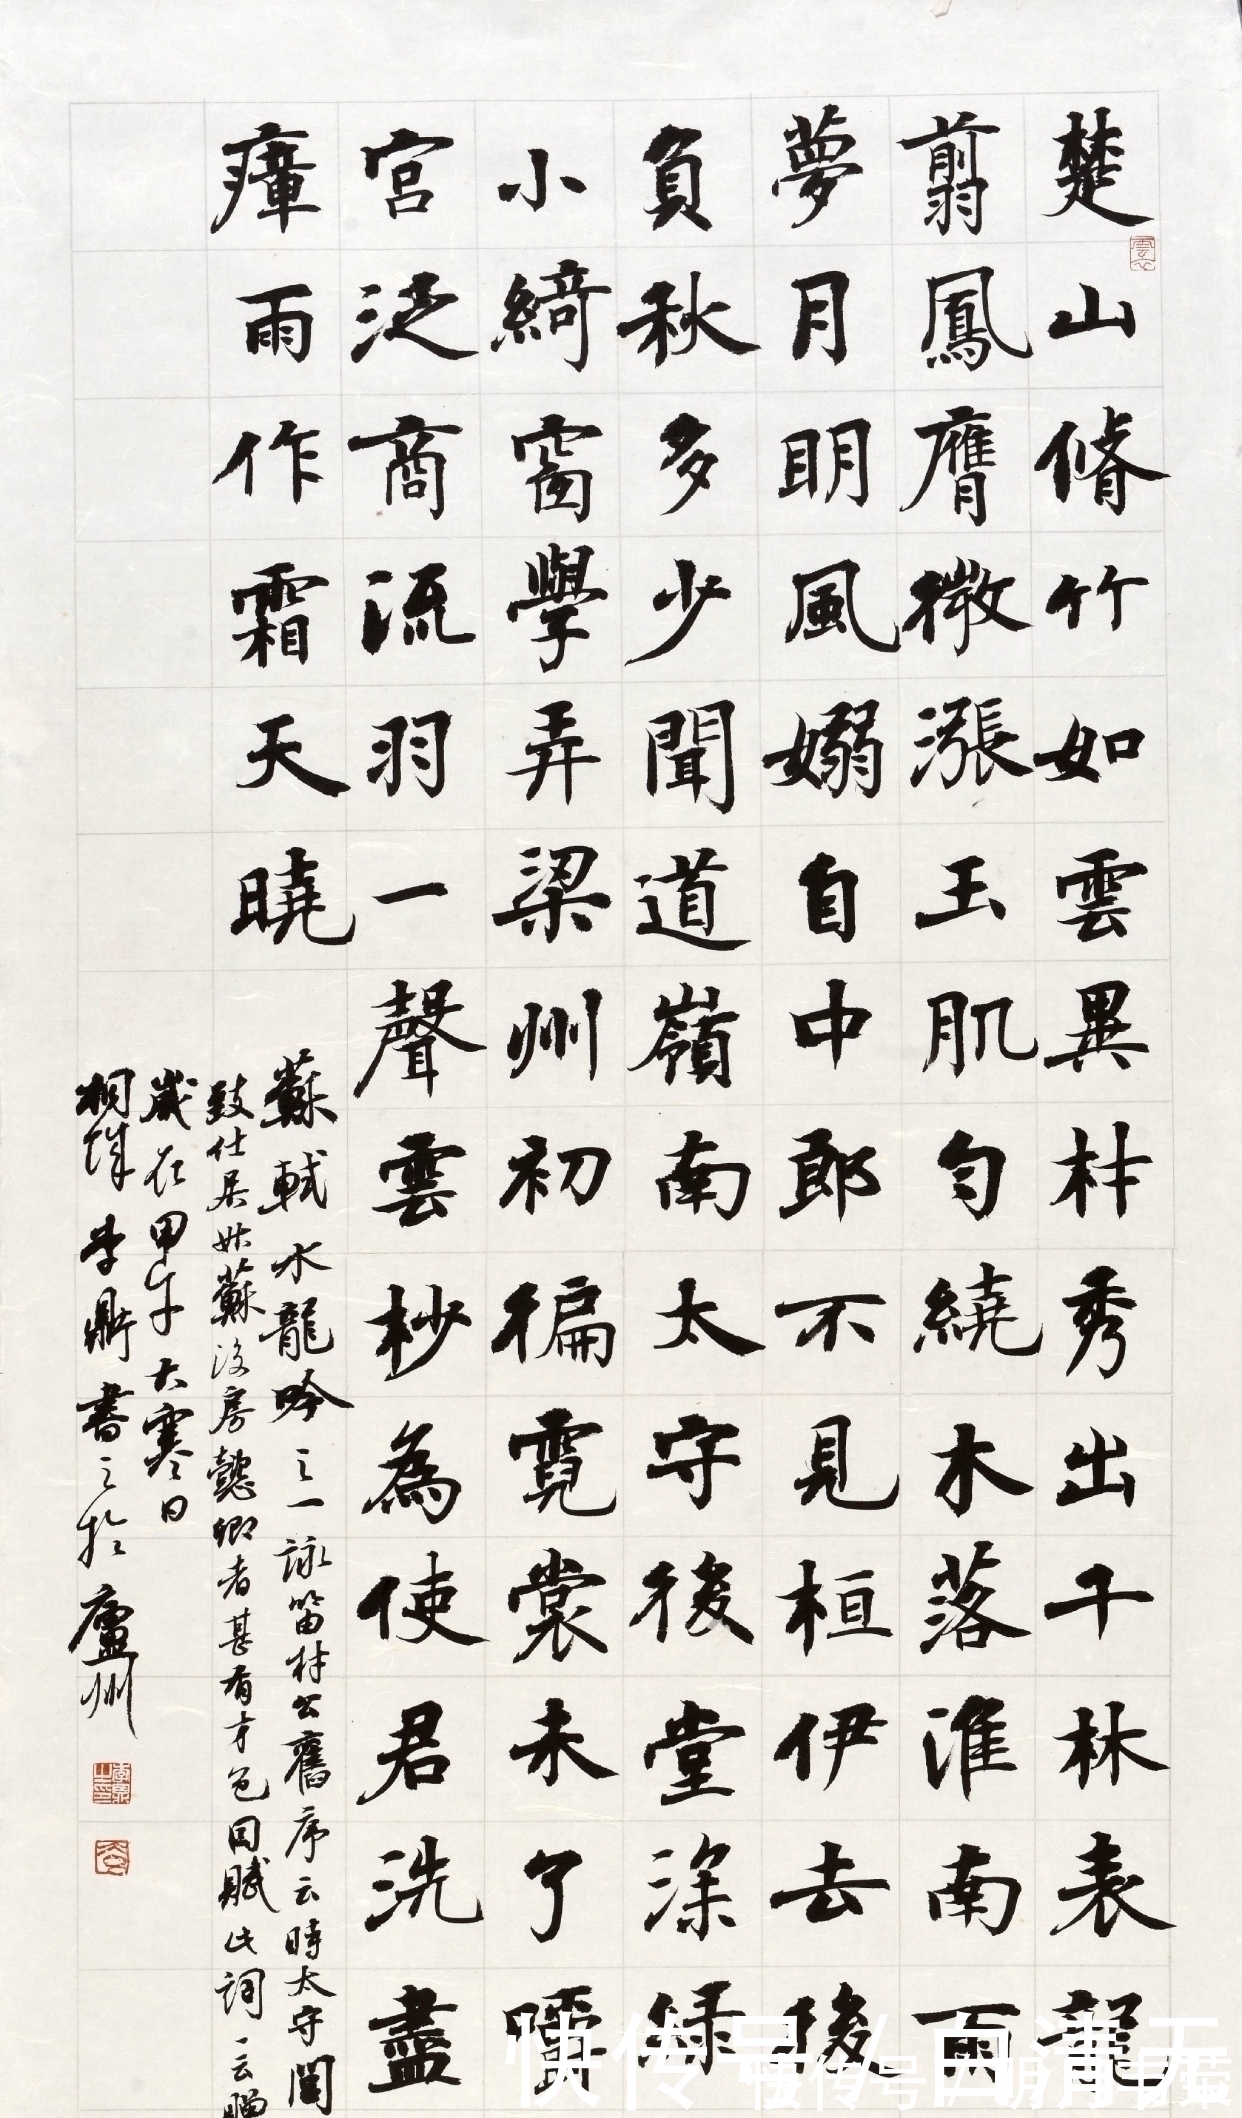 楚山脩竹如雲異材秀出千林表龍
翦鳳膺微漲玉肌勻繞木落淮南雨
夢月明風嫋自中郎不見桓伊去後
負秋多少聞道嶺南太守後堂深綠
小綺窗學弄梁州初徧霓裳未了嚼
宮泛商流羽一聲雲杪為使君洗盡
瘴雨作霜天曉
蘇軾水龍吟之一詠笛材公舊序云時太守閭
致仕居姑蘇後房懿卿者甚有才色因賦此詞一云贈
歲在甲午大寒日
桐城李鼎書之於廬州
快传号/白清天